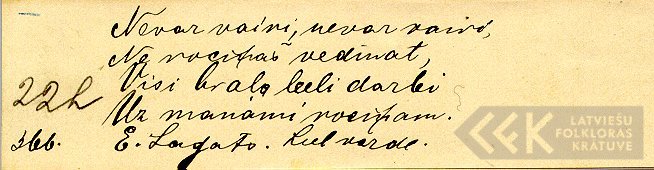 Nevar vairi, nevar vairi,
Ne rociņas vedinat,
Visi bralę leeli darbi
22h
Uz manāmi rociņam.
366. E. Lagato. Leel varde.
LATVIEŠU
FOLKLORAS
KRĀTUVE